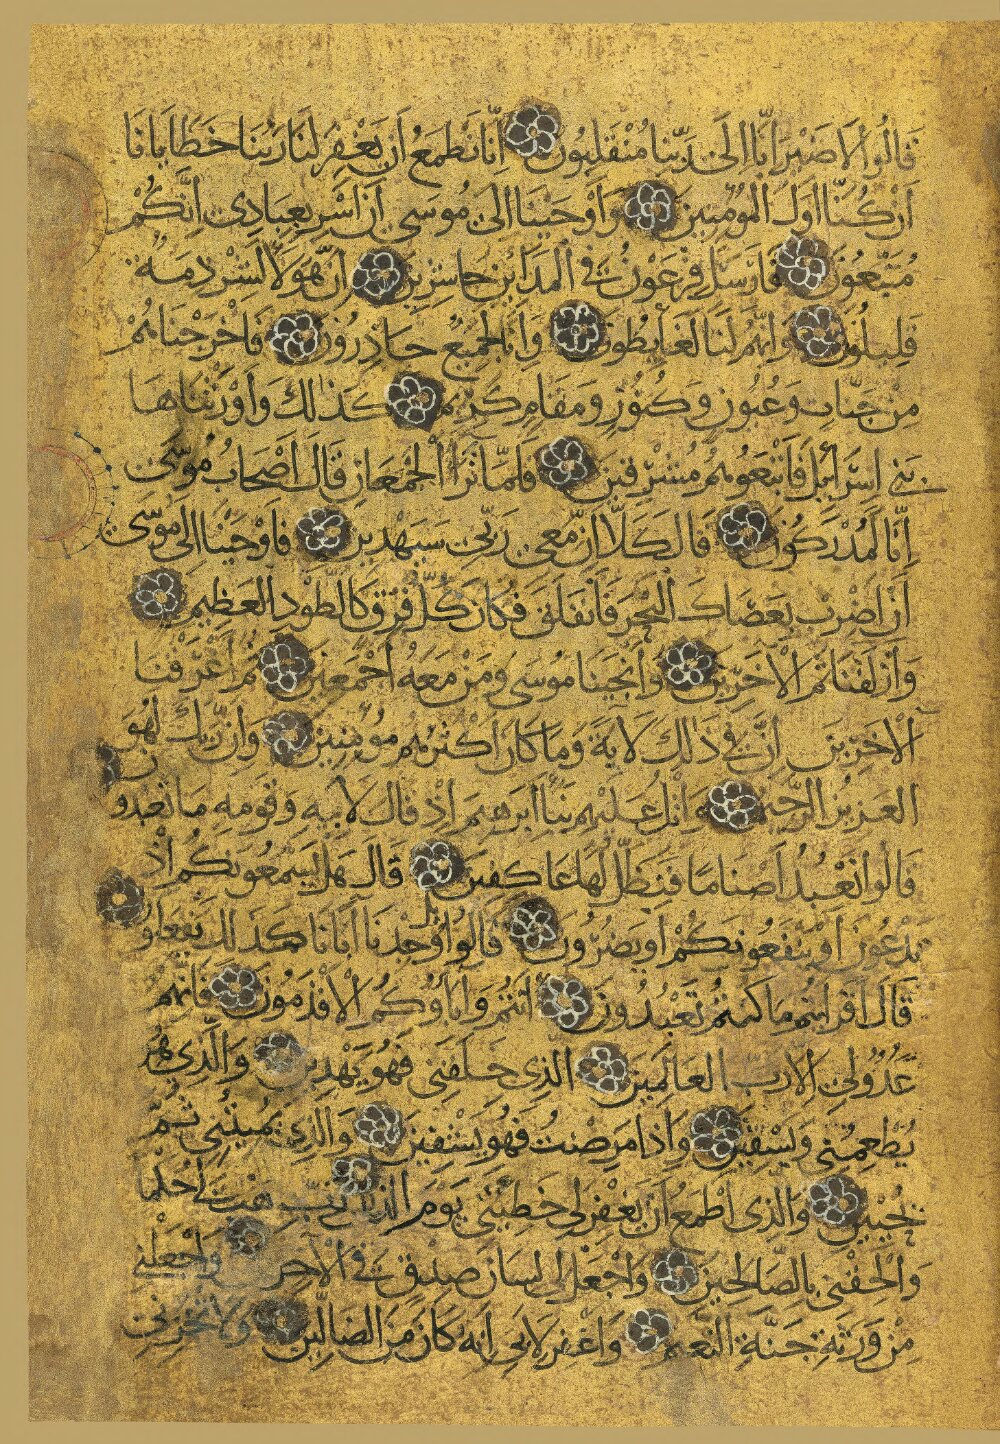 قَالُوا لَا ضَيْرَ إِنَّا إِلَىٰ رَبِّنَا مُنْقَلِبُونَ إِنَّا نَطْمَعُ أَنْ يَغْفِرَ لَنَا رَبُّنَا خَطَايَانَا
أَنْ كُنَّا أَوَّلَ الْمُؤْمِنِينَ وَأَوْحَيْنَا إِلَىٰ مُوسَىٰ أَنْ أَسْرِ بِعِبَادِي إِنَّكُمْ
مُتَّبَعُونَ فَأَرْسَلَ فِرْعَوْنُ فِي الْمَدَائِنِ حَاشِرِينَ إِنَّ هَؤُلَاءِ لَشِرْذِمَةٌ
قَلِيلُونَ وَإِنَّهُمْ لَنَا لَغَائِظُونَ وَإِنَّا لَجَمِيعٌ حَاذِرُونَ فَأَخْرَجْنَاهُمْ
مِنْ جَنَّاتٍ وَعُيُونٍ وَكُنُوزٍ وَمَقَامٍ كَرِيمٍ كَذَٰلِكَ وَأَوْرَثْنَاهَا
بَنِي إِسْرَائِيلَ فَأَتْبَعُوهُمْ مُشْرِقِينَ فَلَمَّا تَرَاءَ الْجَمْعَانِ قَالَ أَصْحَابُ مُوسَىٰ
إِنَّا لَمُدْرَكُونَ قَالَ كَلَّا إِنَّ مَعِيَ رَبِّي سَيَهْدِينِ فَأَوْحَيْنَا إِلَىٰ مُوسَىٰ
أَنِ اضْرِبْ بِعَصَاكَ الْبَحْرَ فَانْفَلَقَ فَكَانَ كُلُّ فِرْقٍ كَالطَّوْدِ الْعَظِيمِ
وَأَزْلَفْنَا ثَمَّ الْآخَرِينَ وَأَنْجَيْنَا مُوسَىٰ وَمَنْ مَعَهُ أَجْمَعِينَ ثُمَّ أَغْرَقْنَا
الْآخَرِينَ إِنَّ فِي ذَٰلِكَ لَآيَةً وَمَا كَانَ أَكْثَرُهُمْ مُؤْمِنِينَ وَإِنَّ رَبَّكَ لَهُوَ
الْعَزِيزُ الرَّحِيمُ وَاتْلُ عَلَيْهِمْ نَبَأَ إِبْرَاهِيمَ إِذْ قَالَ لِأَبِيهِ وَقَوْمِهِ مَا تَعْبُدُونَ
قَالُوا نَعْبُدُ أَصْنَامًا فَنَظَلُّ لَهَا عَاكِفِينَ قَالَ هَلْ يَسْمَعُونَكُمْ إِذْ
تَدْعُونَ أَوْ يَنْفَعُونَكُمْ أَوْ يَضُرُّونَ قَالُوا بَلْ وَجَدْنَا آبَاءَنَا كَذَٰلِكَ يَفْعَلُونَ
قَالَ أَفَرَأَيْتُمْ مَا كُنْتُمْ تَعْبُدُونَ أَنْتُمْ وَآبَاؤُكُمُ الْأَقْدَمُونَ فَإِنَّهُمْ
عَدُوٌّ لِي إِلَّا رَبَّ الْعَالَمِينَ الَّذِي خَلَقَنِي فَهُوَ يَهْدِينِ وَالَّذِي هُوَ
يُطْعِمُنِي وَيَسْقِينِ وَإِذَا مَرِضْتُ فَهُوَ يَشْفِينِ وَالَّذِي يُمِيتُنِي ثُمَّ
يُحْيِينِ وَالَّذِي أَطْمَعُ أَنْ يَغْفِرَ لِي خَطِيئَتِي يَوْمَ الدِّينِ رَبِّ هَبْ لِي حُكْمًا
وَأَلْحِقْنِي بِالصَّالِحِينَ وَاجْعَلْ لِي لِسَانَ صِدْقٍ فِي الْآخِرِينَ وَاجْعَلْنِي
مِنْ وَرَثَةِ جَنَّةِ النَّعِيمِ وَاغْفِرْ لِأَبِي إِنَّهُ كَانَ مِنَ الضَّالِّينَ وَلَا تُخْزِنِي